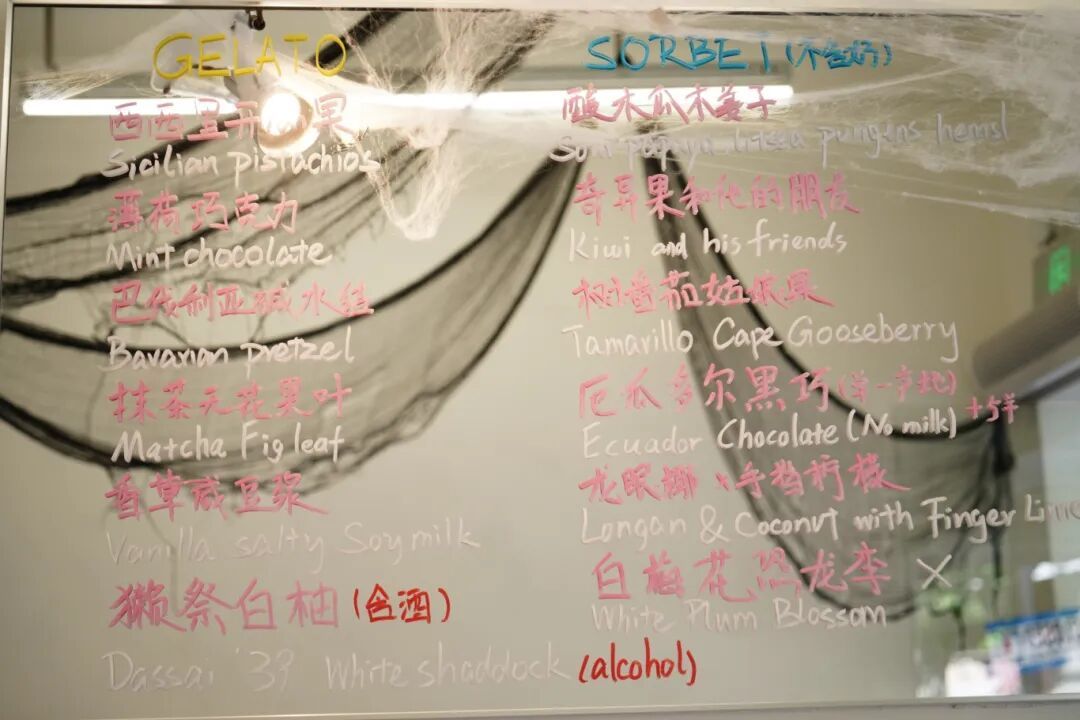 GELATO
西西里开心果
Sicilian pistachios
薄荷巧克力
Mint chocolate
巴伐利亚碱水结
Bavarian pretzel
抹茶无花果叶
Matcha Fig leaf
香草咸豆浆
Vanilla salty Soymilk
獭祭白柚(含酒)
Dassai '39 White shaddock (alcohol)
SORBET (不含奶)
酸木瓜木姜子
Sour papaya litsea pungens hemsl
奇异果和他的朋友
Kiwi and his friends
树番茄姑娘果
Tamarillo Cape Gooseberry
厄瓜多尔黑巧(单一产地)
Ecuador Chocolate (No milk) +5羊
龙眼椰、手指柠檬
Longan & Coconut with Finger Lime
白梅花恐龙李 ×
White Plum Blossom